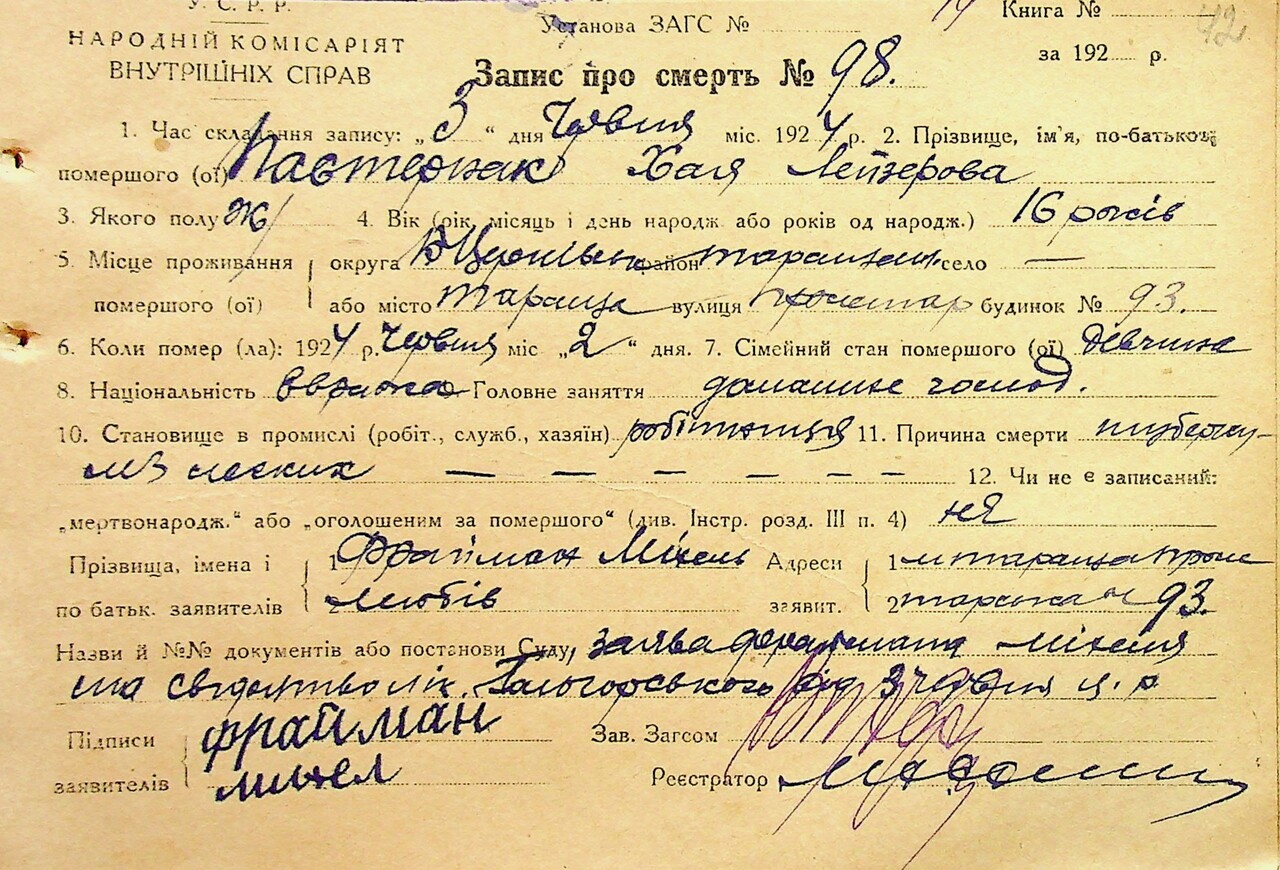 У. С. Р. Р.
НАРОДНІЙ КОМІСАРІЯТ
ВНУТРІШНІХ СПРАВ
Установа ЗАГС №
Книга № 42
за 192 р.
Запис про смерть № 98.
1. Час складання запису: „3“ дня Червня міс. 1924 р. 2. Прізвище, ім'я, по-батькові
помершого (ої) Пастернак Хая Лейзерова
3. Якого полу Ж 4. Вік (рік, місяць і день народж. або років од народж.) 16 років
5. Місце проживання округа Б Церківськ район таращанськ село —
помершого (ої) або місто Тараща вулиця пролетар будинок № 93.
6. Коли помер (ла): 1924 р. Червня міс „2“ дня. 7. Сімейний стан помершого (ої) дівчина
8. Національність Еврейка Головне заняття домашнє господ.
10. Становище в промислі (робіт., служб., хазяїн) робітниця 11. Причина смерти туберку-
льоз легких — — — — — — 12. Чи не є записаний:
„мертвонародж.“ або „оголошеним за помершого“ (див. Інстр. розд. III п. 4) ня
Прізвища, імена і 1 Фрайман Міхель Адреси 1 м тараща проле
по батьк. заявителів 2 заявит. 2 тарська 93.
Назви й №№ документів або постанови Суду, заява Фраймана Міхеля
та свідоцтво лік. від 3 червня ц. р
Підписи фрайман Зав. Загсом
заявителів михел Реєстратор